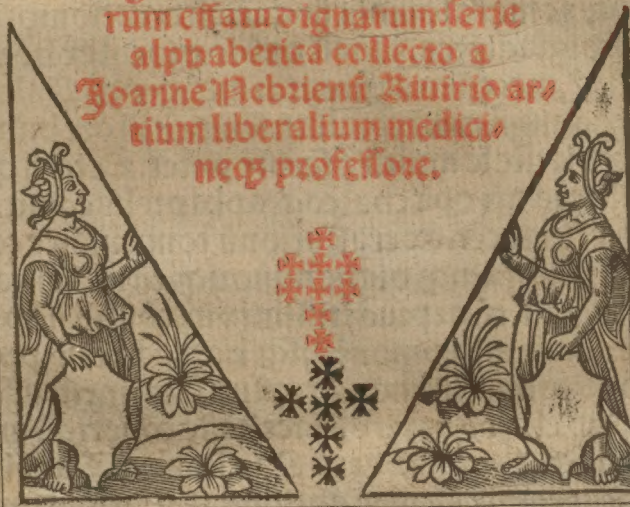 rum effatu dignarum: serie
alphabetica collecto a
Joanne Nebriensi Riuirio ar⸗
tium liberalium medici⸗
neqꝫ professore.